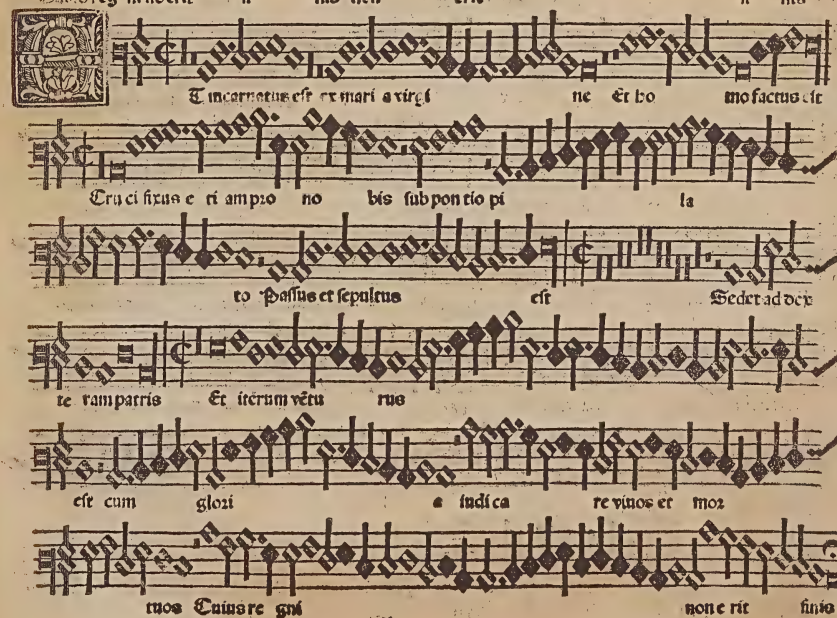 ET incarnatus est ex mari a virgi ne Et ho mo factus est
Cru ci fixus e ti am pro no bis sub pon tio pi la
to Passus et sepultus est Sedet ad dex
te ram patris Et iterum vẽtu rus
est cum glori a iudi ca re viuos et mor
tuos Cuius re gni non e rit finis